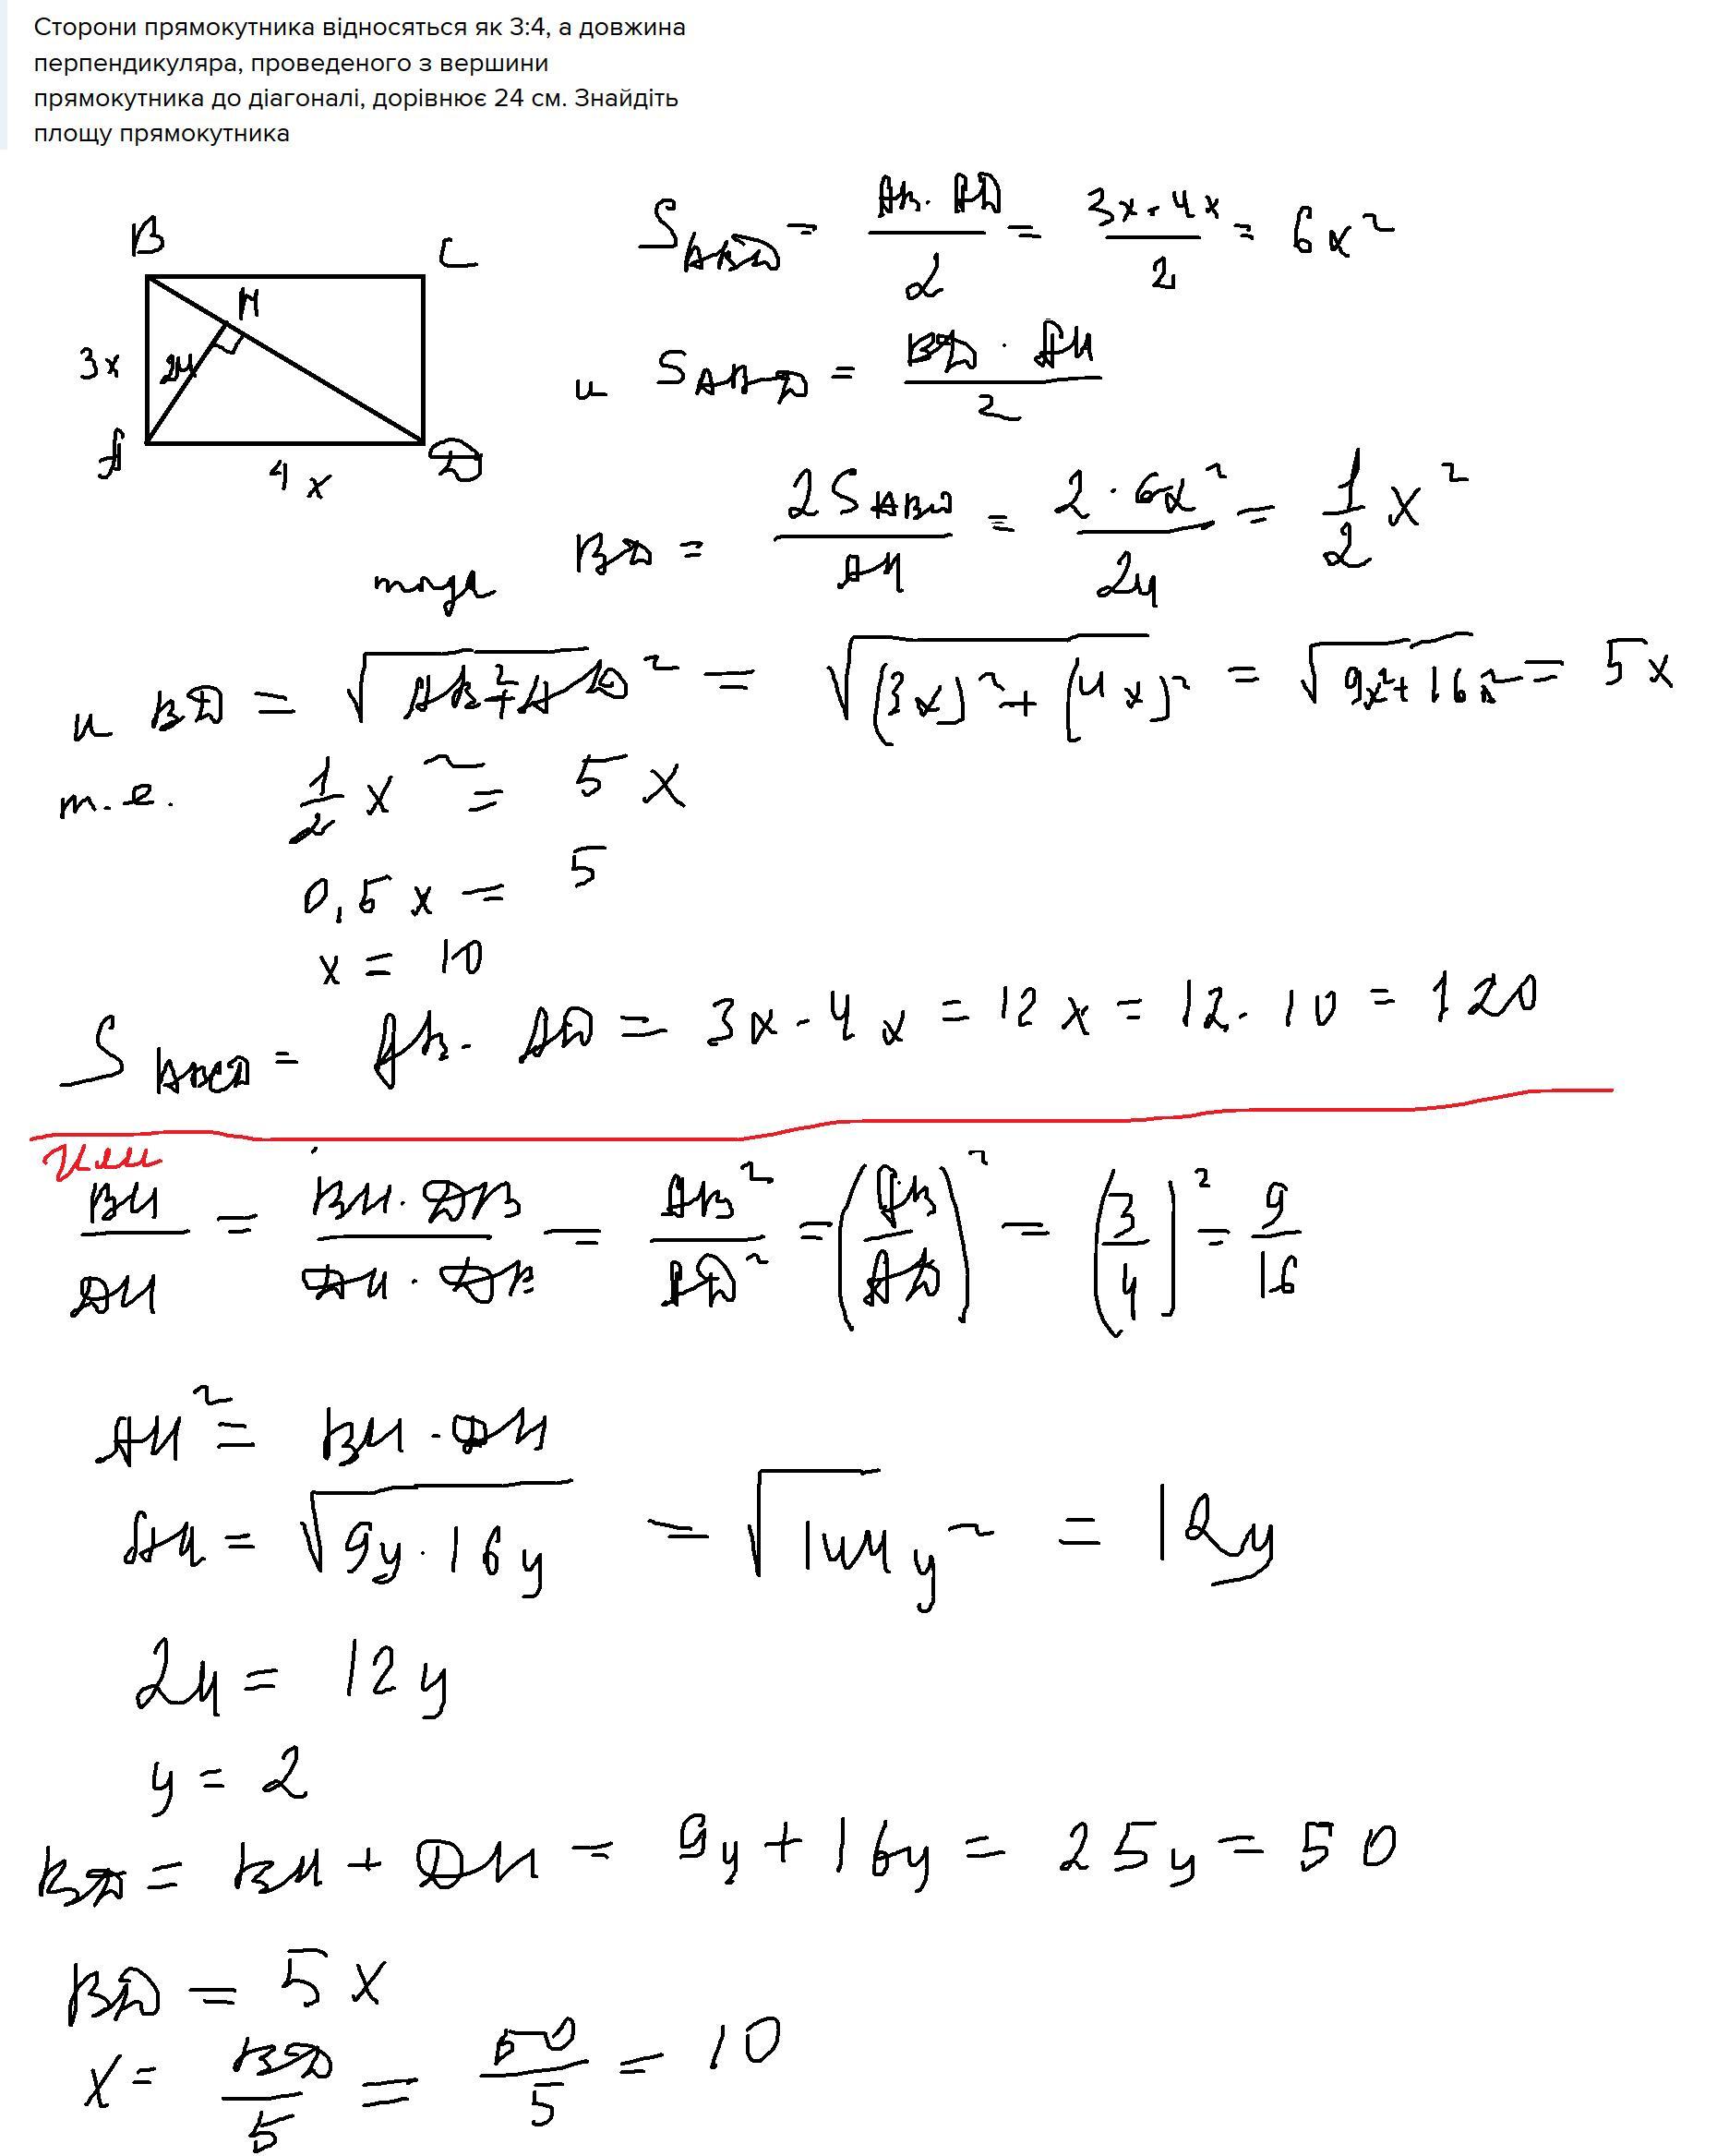 Сторони прямокутника відносяться як 3:4, а довжина
перпендикуляра, проведеного з вершини
прямокутника до діагоналі, дорівнює 24 см. Знайдіть
площу прямокутника
B C
H
3x 24
A 4x D
S_ABD = (AB · AD)/2 = (3x · 4x)/2 = 6x²
и S_ABD = (BD · AH)/2
тогда BD = 2S_ABD/AH = (2 · 6x²)/24 = 1/2 x²
и BD = √(AB² + AD²) = √((3x)² + (4x)²) = √(9x² + 16x²) = 5x
т.е. 1/2 x² = 5x
0,5x = 5
x = 10
S_ABCD = AB · AD = 3x · 4x = 12x = 12 · 10 = 120
Или
BH/DH = (BH · DB)/(DH · DB) = AB²/AD² = (AB/AD)² = (3/4)² = 9/16
AH² = BH · DH
AH = √(9y · 16y) = √(144y²) = 12y
24 = 12y
y = 2
BD = BH + DH = 9y + 16y = 25y = 50
BD = 5x
x = BD/5 = 50/5 = 10